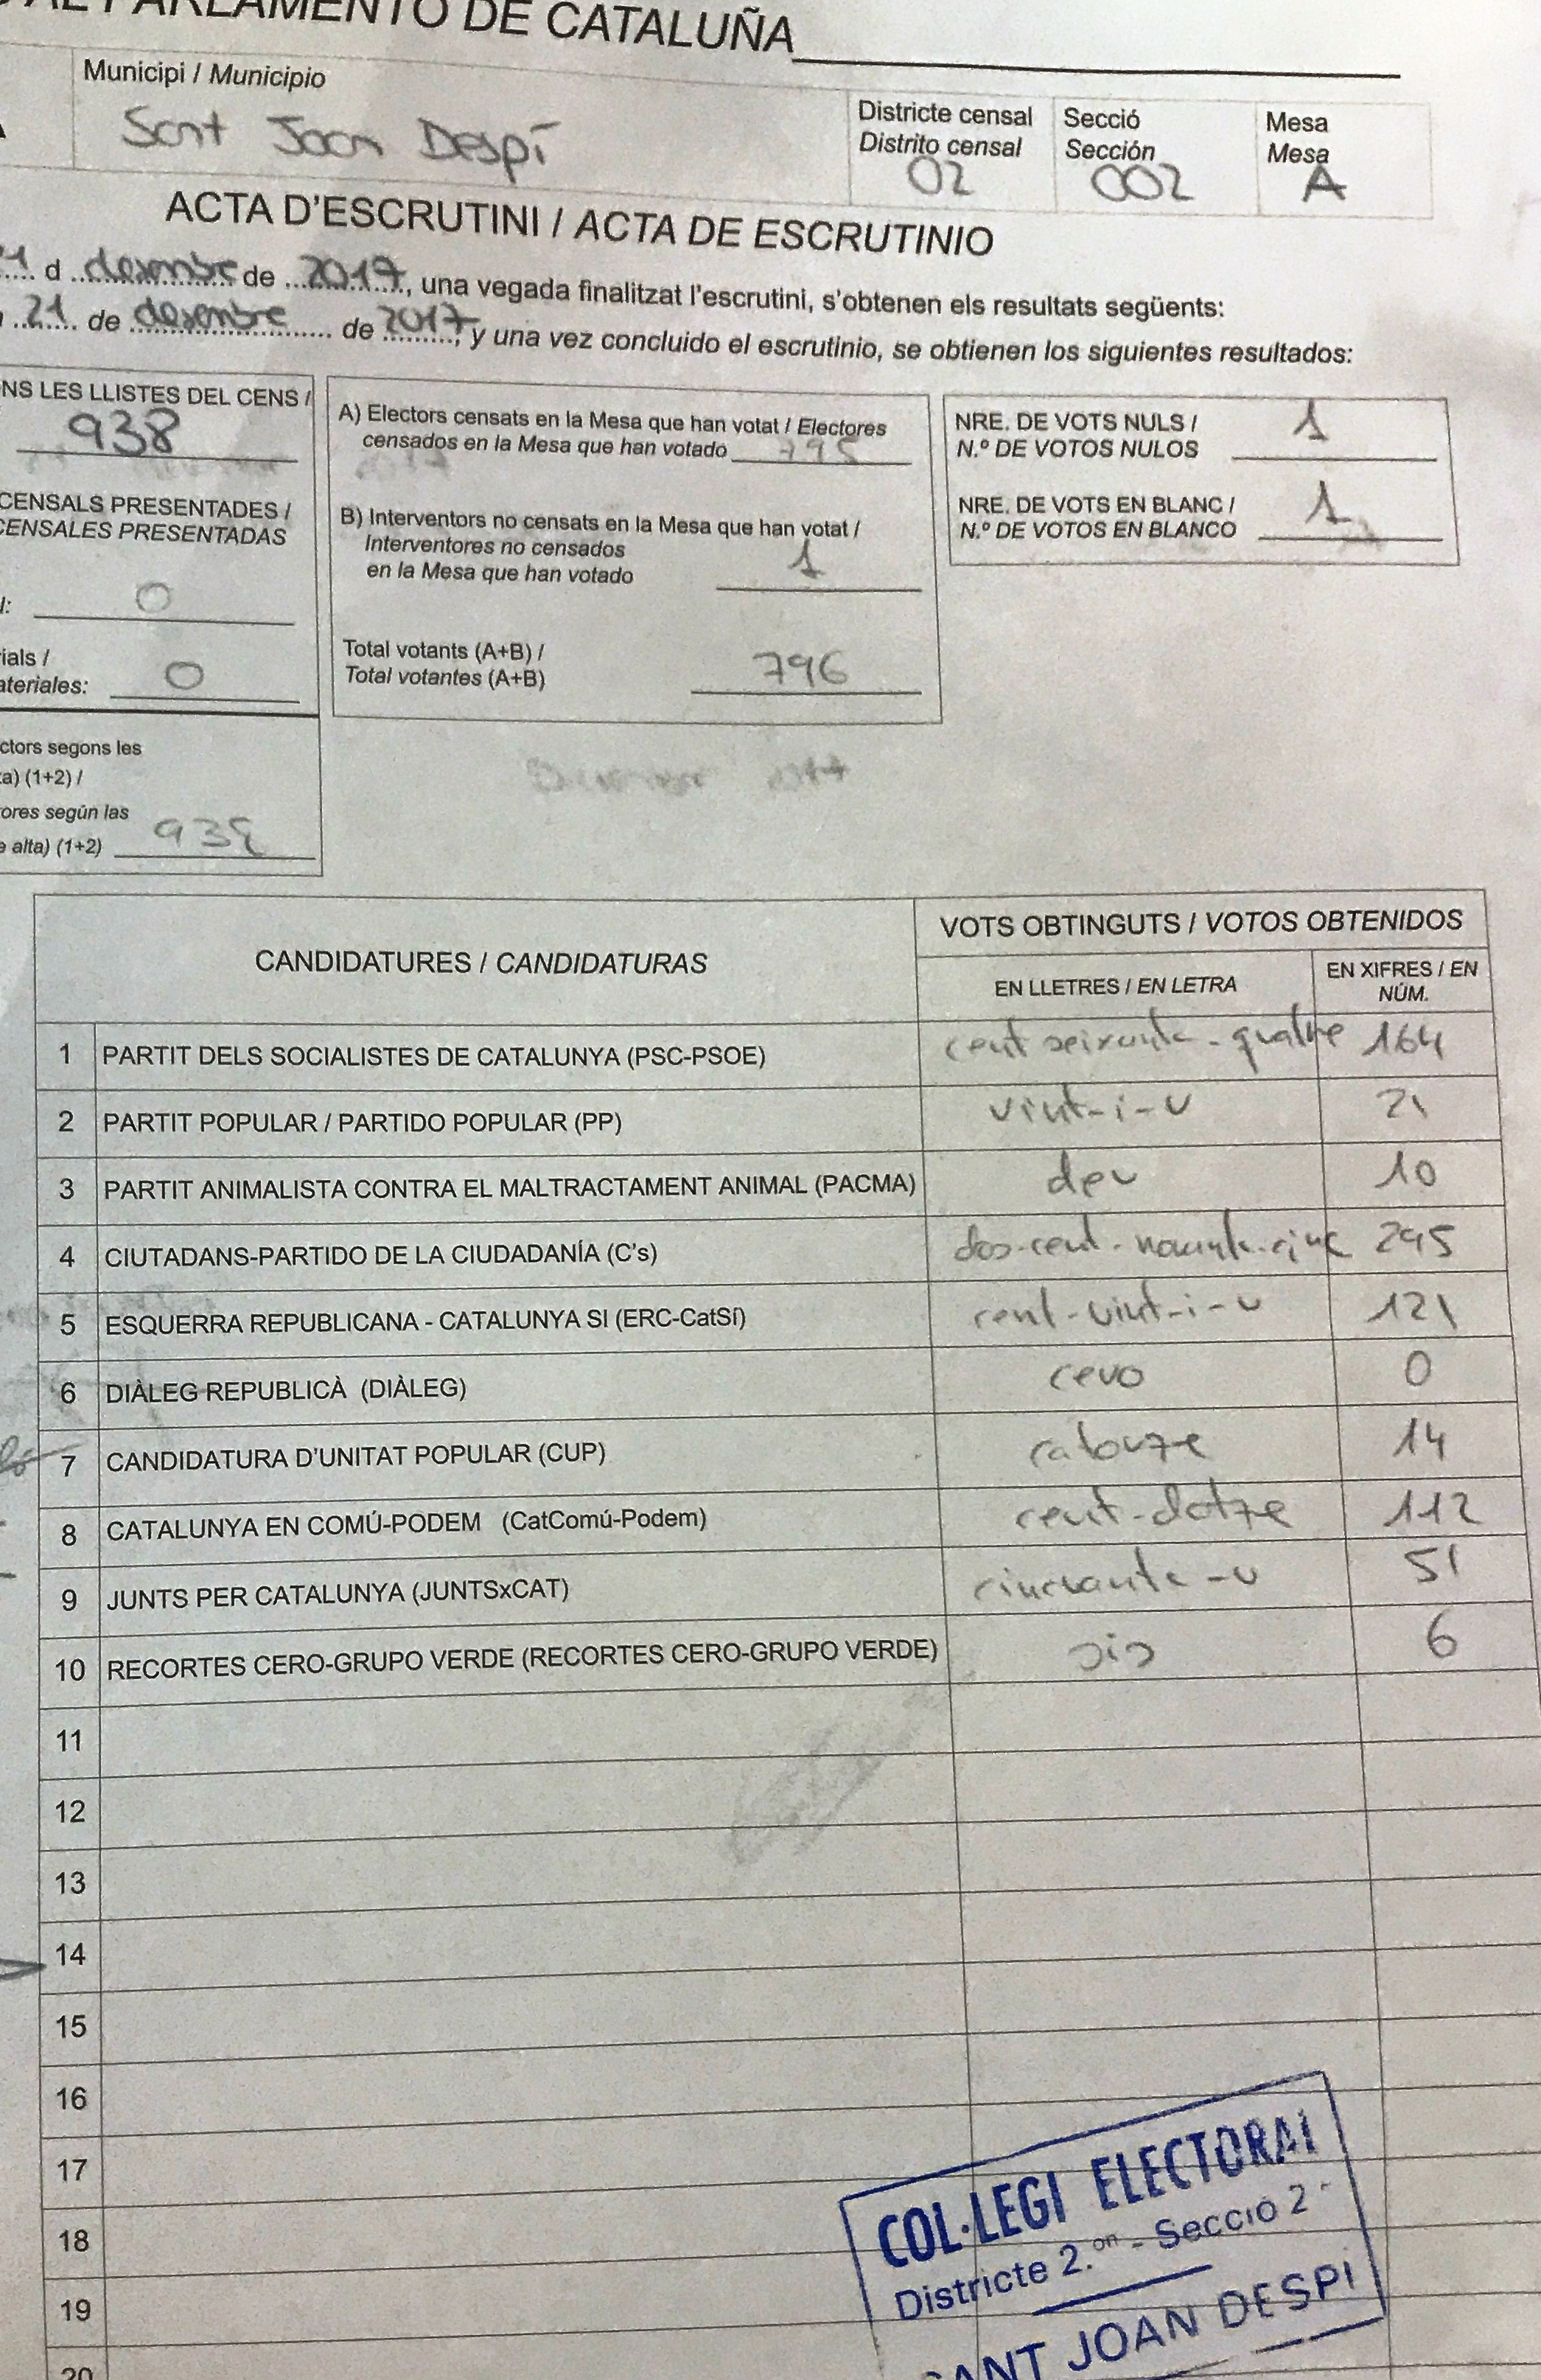 AL PARLAMENTO DE CATALUÑA
Municipi / Municipio
Sant Joan Despí
Districte censal
Distrito censal
02
Secció
Sección
002
Mesa
Mesa
A
ACTA D'ESCRUTINI / ACTA DE ESCRUTINIO
d desembre de 2017, una vegada finalitzat l'escrutini, s'obtenen els resultats següents:
21 de desembre de 2017, y una vez concluido el escrutinio, se obtienen los siguientes resultados:
NS LES LLISTES DEL CENS /
938
CENSALS PRESENTADES /
CENSALES PRESENTADAS
l: 0
ials /
ateriales: 0
ctors segons les
ta) (1+2) /
ores según las
e alta) (1+2) 938
A) Electors censats en la Mesa que han votat / Electores
censados en la Mesa que han votado 795
B) Interventors no censats en la Mesa que han votat /
Interventores no censados
en la Mesa que han votado 1
Total votants (A+B) /
Total votantes (A+B) 796
NRE. DE VOTS NULS /
N.º DE VOTOS NULOS 1
NRE. DE VOTS EN BLANC /
N.º DE VOTOS EN BLANCO 1
CANDIDATURES / CANDIDATURAS
VOTS OBTINGUTS / VOTOS OBTENIDOS
EN LLETRES / EN LETRA
EN XIFRES / EN
NÚM.
1 PARTIT DELS SOCIALISTES DE CATALUNYA (PSC-PSOE) cent seixanta-quatre 164
2 PARTIT POPULAR / PARTIDO POPULAR (PP) vint-i-u 21
3 PARTIT ANIMALISTA CONTRA EL MALTRACTAMENT ANIMAL (PACMA) deu 10
4 CIUTADANS-PARTIDO DE LA CIUDADANÍA (C's) dos-cent-noranta-cinc 295
5 ESQUERRA REPUBLICANA - CATALUNYA SI (ERC-CatSí) cent-vint-i-u 121
6 DIÀLEG REPUBLICÀ (DIÀLEG) cero 0
7 CANDIDATURA D'UNITAT POPULAR (CUP) catorze 14
8 CATALUNYA EN COMÚ-PODEM (CatComú-Podem) cent-dotze 112
9 JUNTS PER CATALUNYA (JUNTSxCAT) cincuanta-u 51
10 RECORTES CERO-GRUPO VERDE (RECORTES CERO-GRUPO VERDE) sis 6
11
12
13
14
15
16
17
18
19
20
COL·LEGI ELECTORAL
Districte 2.on - Secció 2
SANT JOAN DESPI